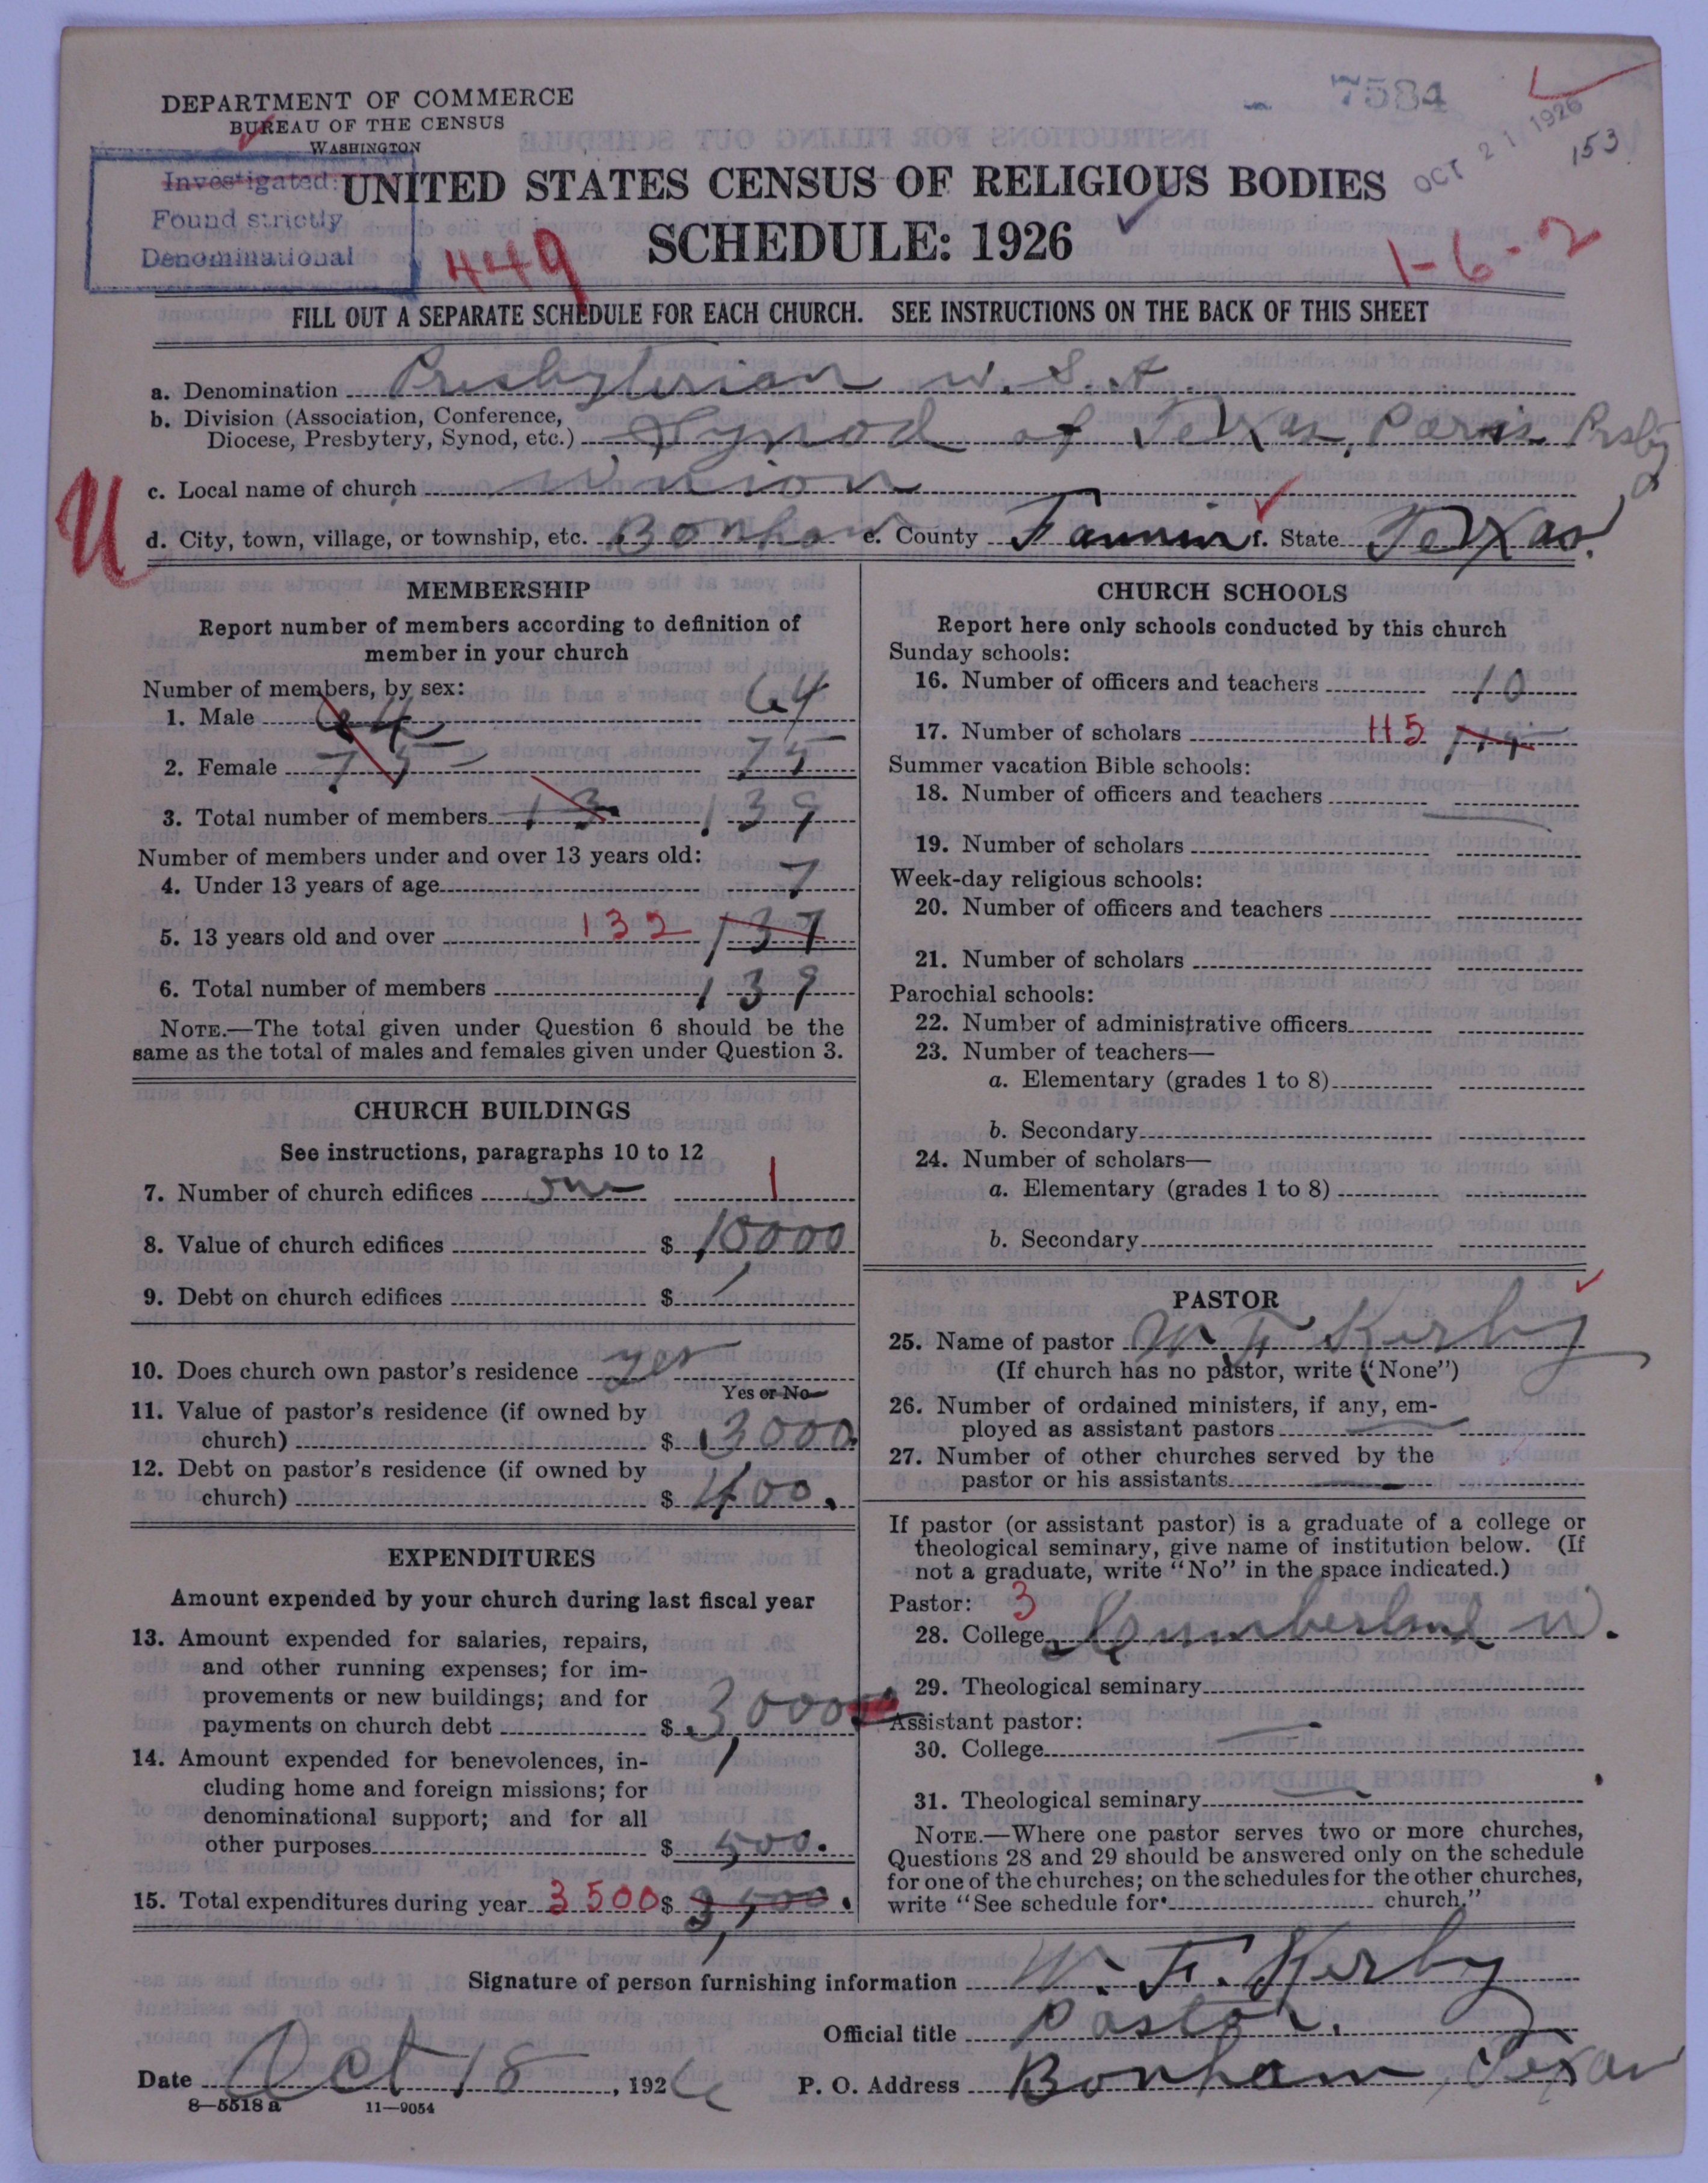 DEPARTMENT OF COMMERCE
BUREAU OF THE CENSUS
WASHINGTON
7584
OCT 21 1926
153
Investigated:
Found strictly
Denominational
UNITED STATES CENSUS OF RELIGIOUS BODIES
SCHEDULE: 1926
449
1-6-2
FILL OUT A SEPARATE SCHEDULE FOR EACH CHURCH. SEE INSTRUCTIONS ON THE BACK OF THIS SHEET
a. Denomination Presbyterian U.S.A.
b. Division (Association, Conference,
Diocese, Presbytery, Synod, etc.) Synod of Texas, Paris Presby
U
c. Local name of church Union
d. City, town, village, or township, etc. Bonham e. County Fannin f. State Texas.
MEMBERSHIP
Report number of members according to definition of
member in your church
Number of members, by sex:
1. Male 64 64
2. Female 75 75
3. Total number of members 13 139
Number of members under and over 13 years old:
4. Under 13 years of age 7
5. 13 years old and over 132 137
6. Total number of members 139
NOTE.—The total given under Question 6 should be the
same as the total of males and females given under Question 3.
CHURCH BUILDINGS
See instructions, paragraphs 10 to 12
7. Number of church edifices one 1
8. Value of church edifices $ 10000
9. Debt on church edifices $
10. Does church own pastor's residence yes
Yes or No
11. Value of pastor's residence (if owned by
church) $ 3000.
12. Debt on pastor's residence (if owned by
church) $ 400.
EXPENDITURES
Amount expended by your church during last fiscal year
13. Amount expended for salaries, repairs,
and other running expenses; for im-
provements or new buildings; and for
payments on church debt $ 3,000
14. Amount expended for benevolences, in-
cluding home and foreign missions; for
denominational support; and for all
other purposes $ 500.
15. Total expenditures during year 3500 $ 3,500.
CHURCH SCHOOLS
Report here only schools conducted by this church
Sunday schools:
16. Number of officers and teachers 10
17. Number of scholars 115 115
Summer vacation Bible schools:
18. Number of officers and teachers
19. Number of scholars
Week-day religious schools:
20. Number of officers and teachers
21. Number of scholars
Parochial schools:
22. Number of administrative officers
23. Number of teachers—
a. Elementary (grades 1 to 8)
b. Secondary
24. Number of scholars—
a. Elementary (grades 1 to 8)
b. Secondary
PASTOR
25. Name of pastor W F Kerby
(If church has no pastor, write "None")
26. Number of ordained ministers, if any, em-
ployed as assistant pastors
27. Number of other churches served by the
pastor or his assistants
If pastor (or assistant pastor) is a graduate of a college or
theological seminary, give name of institution below. (If
not a graduate, write "No" in the space indicated.)
Pastor: 3
28. College Cumberland U.
29. Theological seminary
Assistant pastor:
30. College
31. Theological seminary
NOTE.—Where one pastor serves two or more churches,
Questions 28 and 29 should be answered only on the schedule
for one of the churches; on the schedules for the other churches,
write "See schedule for church."
Signature of person furnishing information W. F. Kerby
Official title Pastor.
Date Oct 18, 1926 P. O. Address Bonham, Texas
8—5518 a 11—9054